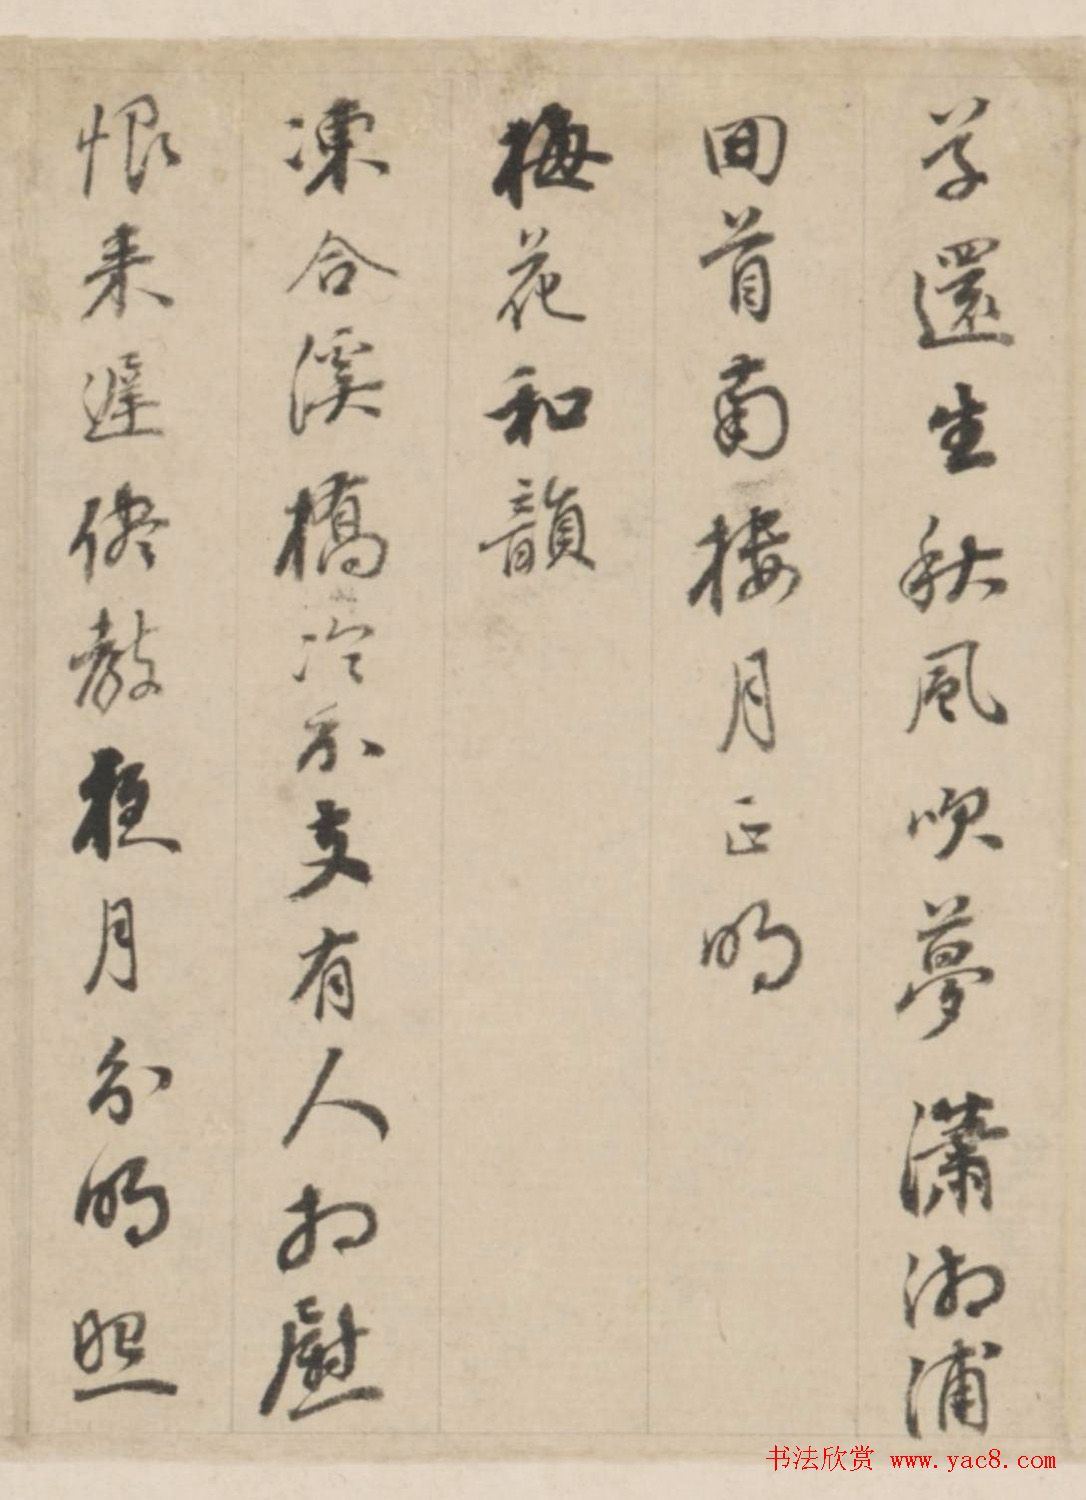 草還生秋風吹夢瀟湘浦
回首南樓月正明
梅花和韻
凍合溪橋冷不支有人相慰
恨来遲儘教穐月分明照
书法欣赏 www.yac8.com